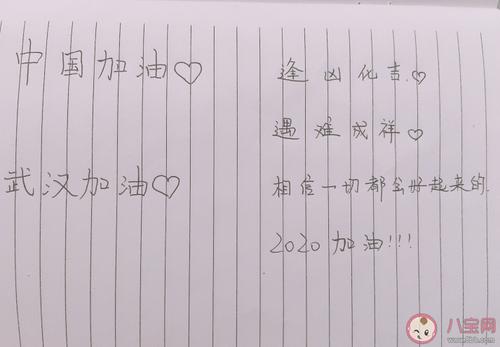 中国加油♡
武汉加油♡
逢凶化吉.♡
遇难成祥♡
相信一切都会好起来的.
2020加油!!!
八宝网
www.8bb.com